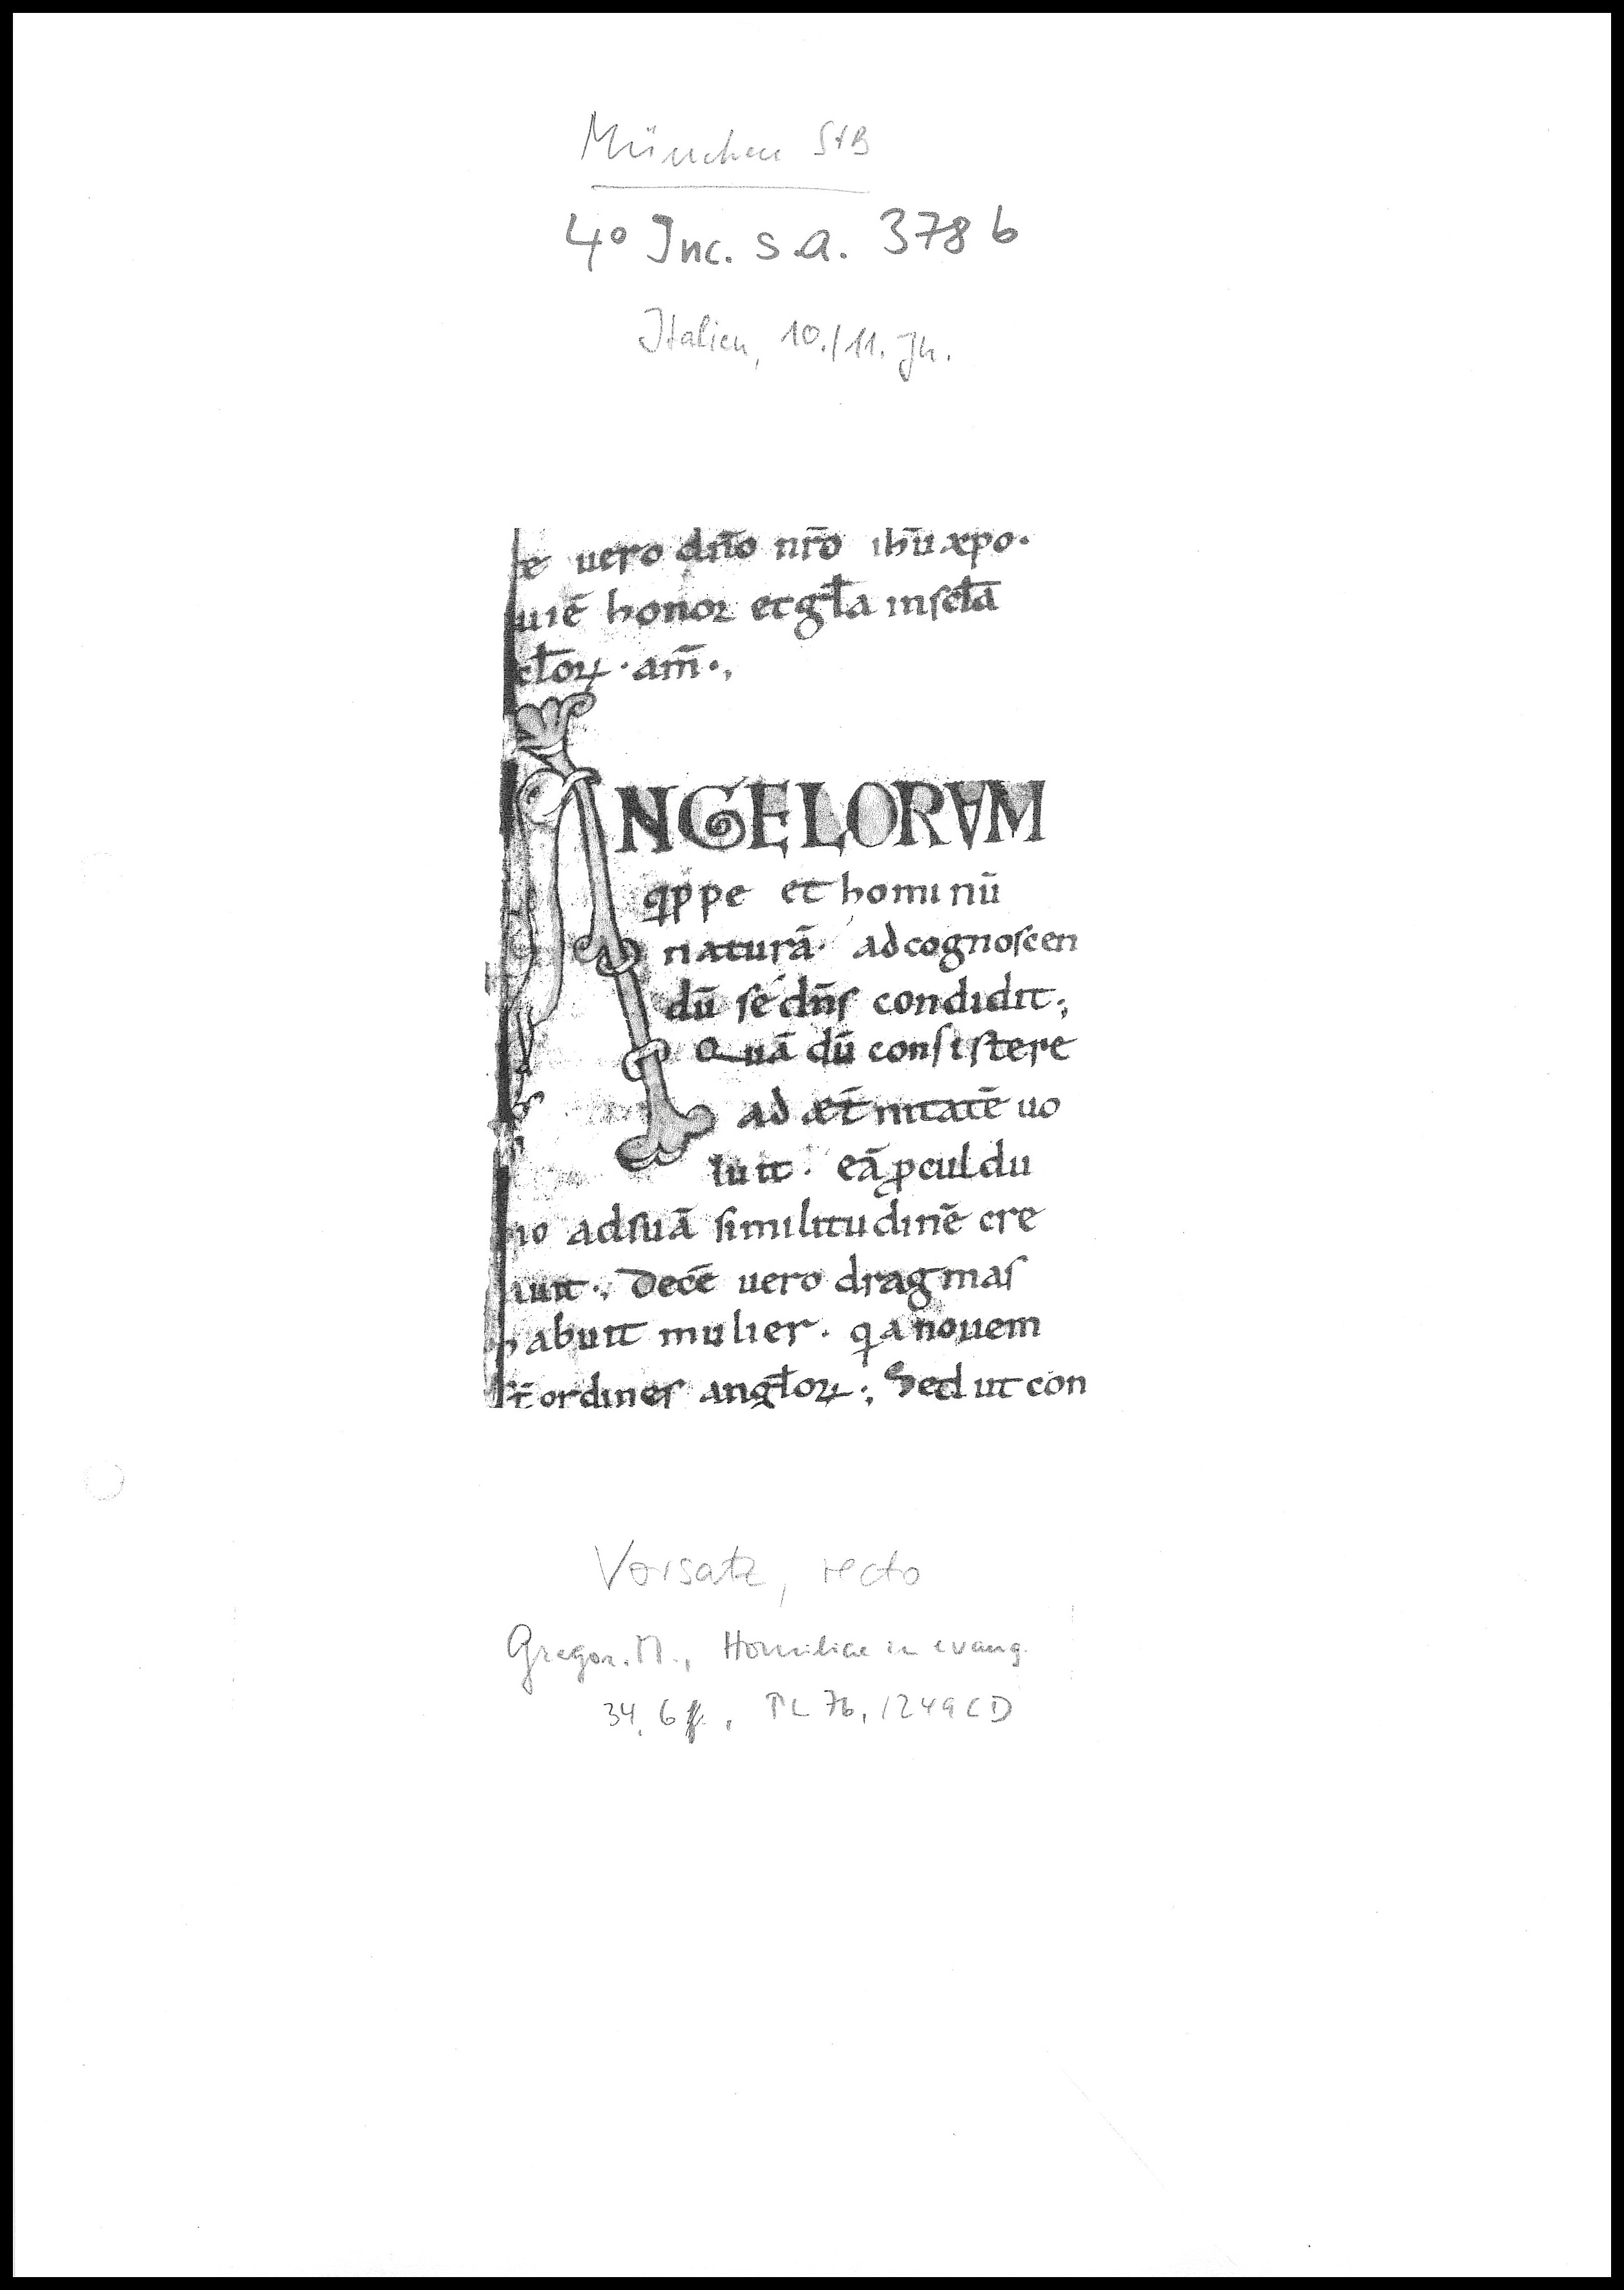 München StB
4° Inc. s.a. 378 b
Italien, 10./11. Jh.
e uero dño nr̄o ihū xp̄o.
uiē honor et gl̄a in scl̄a
cl̄oꝝ. am̄.,
ANGELORVM
qppe et hominū
naturā. ad cognoscen
dū se dn̄s condidit;
Quā dū consistere
ad æt̄nitatē uo
luit. eā ꝓculdu
io ad suā similitudinē cre
auit., Decē uero dragmas
habuit mulier. qa nouem
st̄ ordines angl̄oꝝ.; Sed ut con
Vorsatz, recto
Gregor. M., Homiliae in evang.
34, 6 f., PL 76, 1249 CD